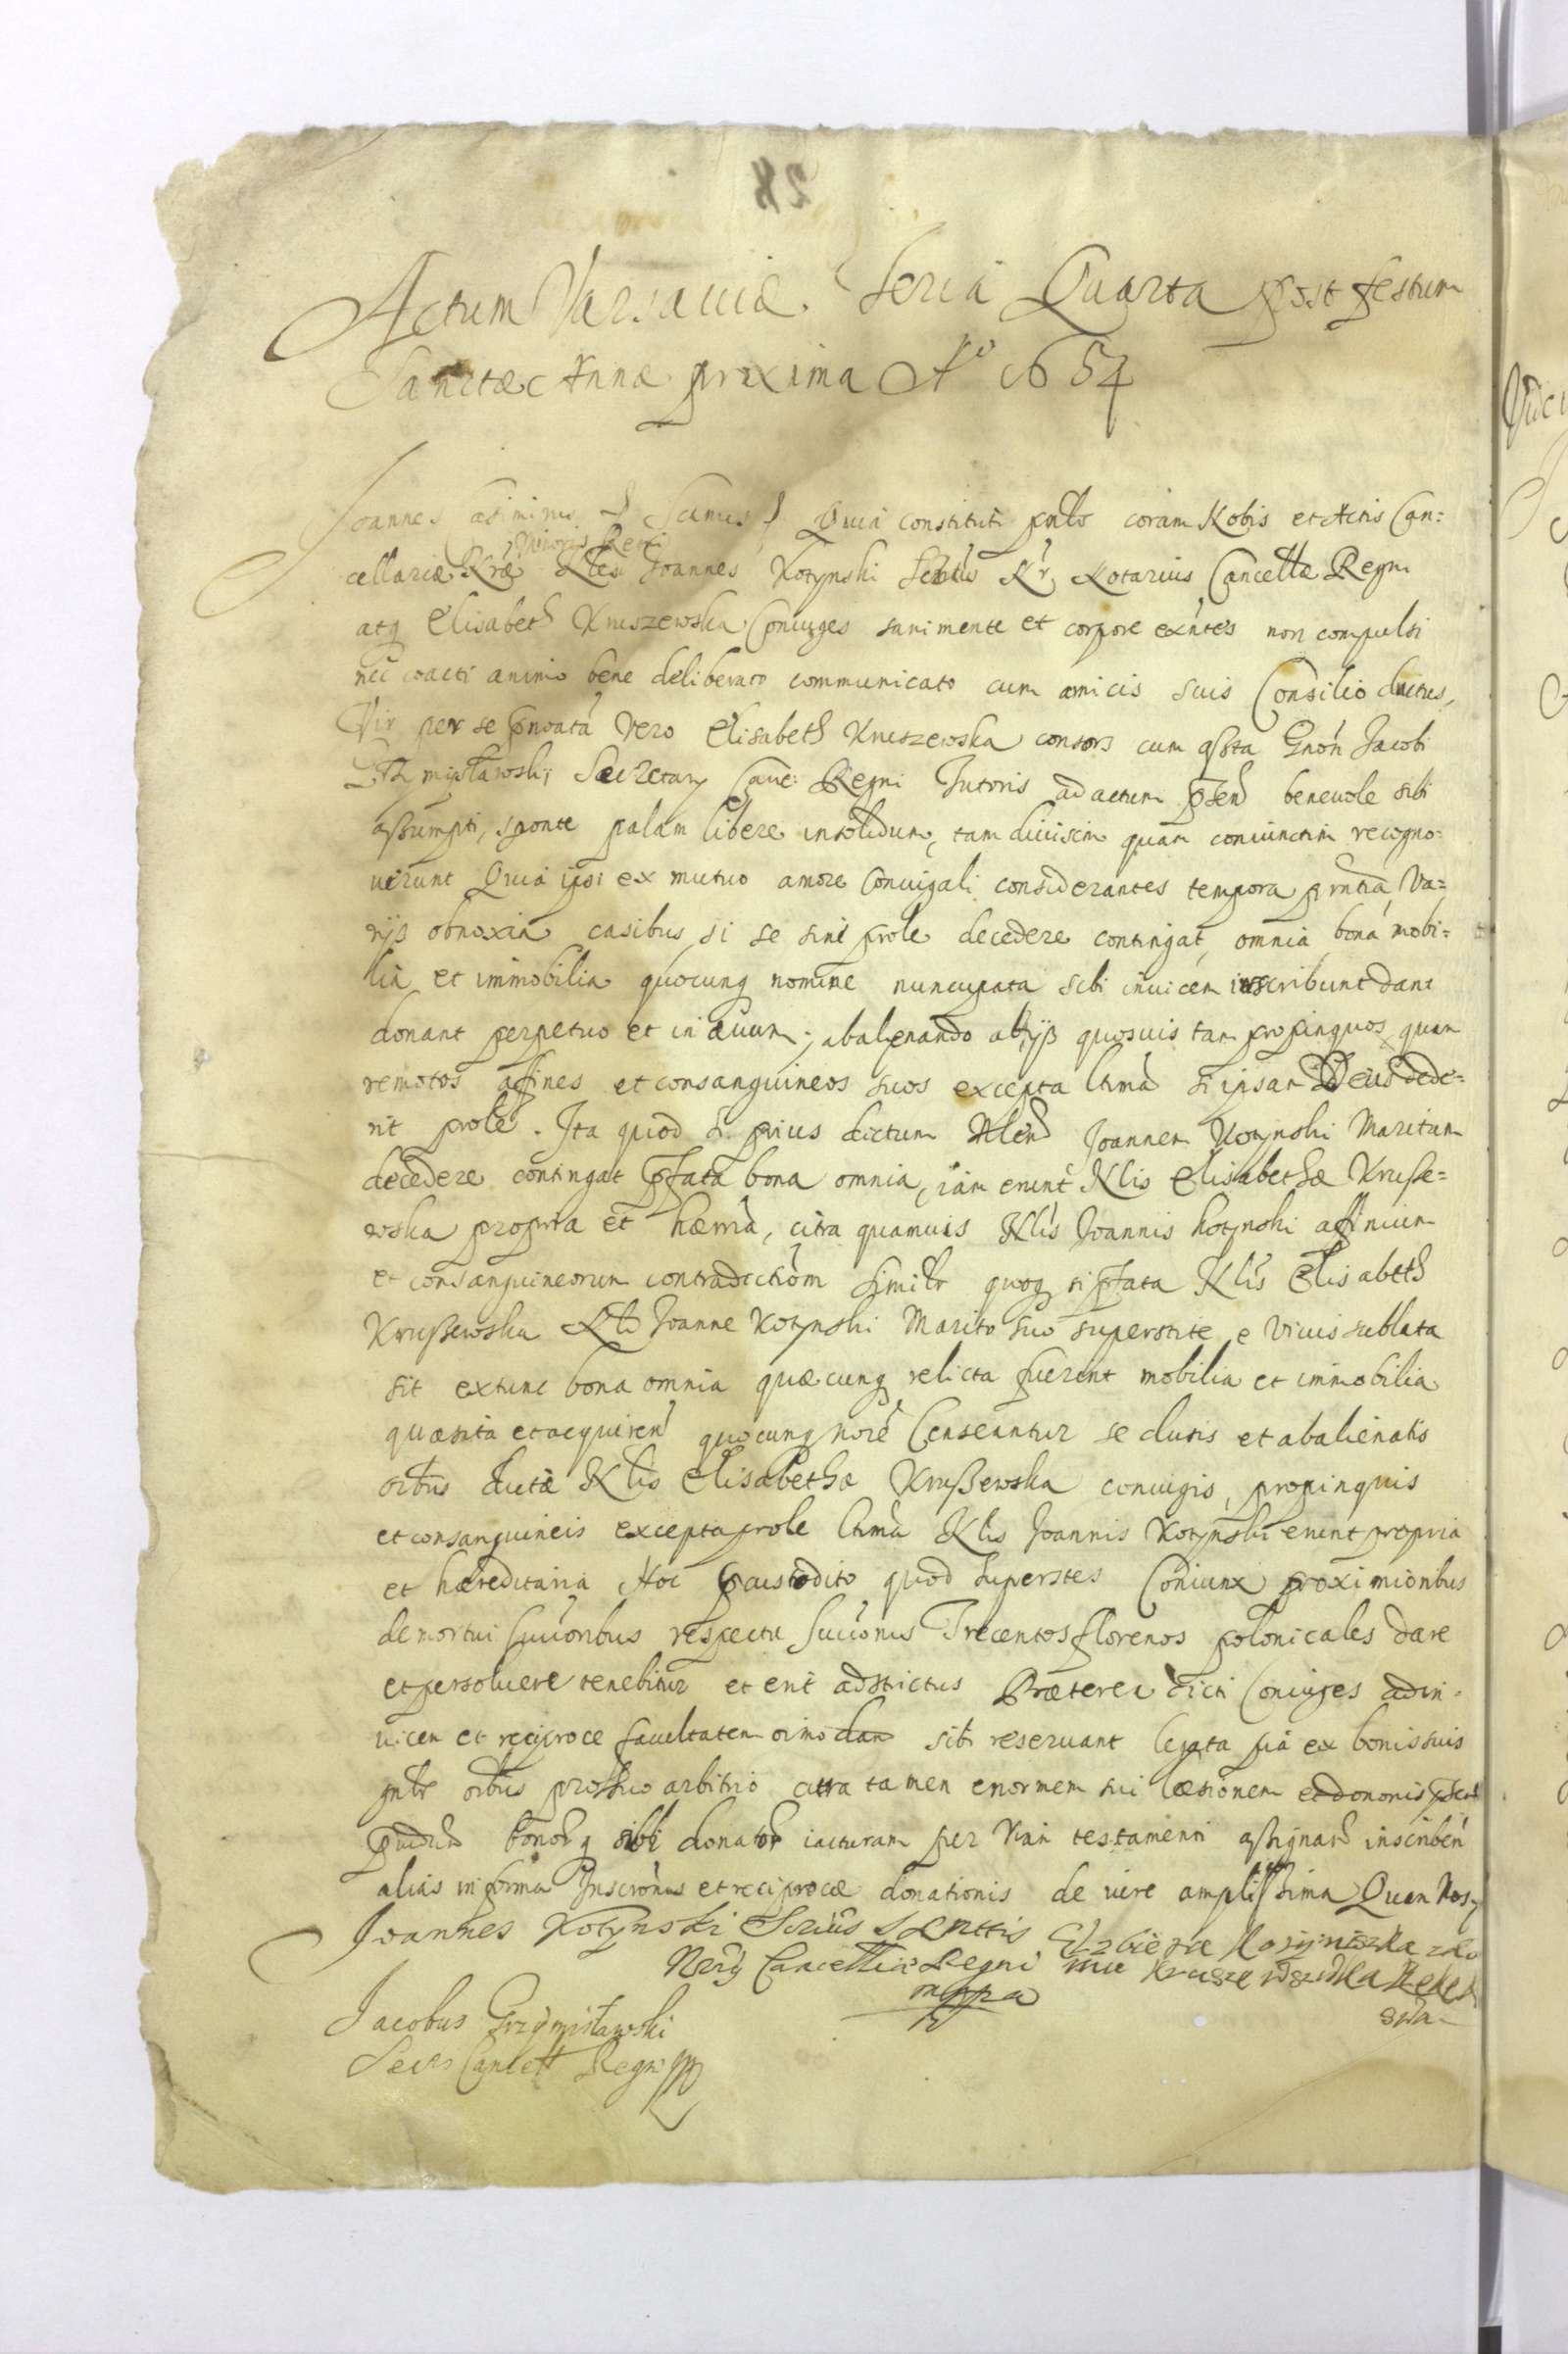 28
Actum Varsauiæ. Feria Quarta post festum
Sanctæ Annæ proxima Aº 1654
Joannes Casimirus Quia constituti pnlr coram Nobis et Actis Can:
Maioris Regni
cellariæ Nræ Nbles Joannes Kotynski Notarius Cancellæ Regni
atq Elisabeth Kruszewska Coniuges sani mente et corpore exntes non compulsi
nec coacti animo bene deliberato communicato cum amicis suis Consilio ductus,
Vir per se pnoata Vero Elisabeth Kruszewska consors cum assta Gnōn Jacobi
Grzymisławskij Secretarij Canc: Regni Tutoris ad actum psen beneuole sibi
assumpti, sponte palam libere insolidum, tam diuisim quam coniunctim recogno=
uerunt Quia ipsi ex mutuo amore Coniugali considerantes tempora prntia, Va=
rijs obnoxia casibus si se sine prole decedere contingat, omnia bona mobi=
lia et immobilia quocunq nomine nuncupata sibi inuicem inscribunt dant
donant perpetuo et in æuum; abalienando ab ijs quosuis tam propinquos quam
remotos affines et consanguineos suos excepta ltima si ipsam Deus dede=
rit prole. Ita quod si prius dictum Nlem Joannem Kotynski Maritum
decedere contingat pfata bona omnia, iam erunt Nlis Elisabethæ Krusse=
wska propria et hæria, citra quamuis Nlis Joannis Kotynski affinium
et consanguineorum contradictiōm similr quoq si pfata Nlis Elisabeth
Krussewska Nli Joanne Kotynski Marito suo superstite e viuis sublata
sit extunc bona omnia quæcunq relicta fuerint mobilia et immobilia
quæsita et acquiren quocunq noīe Censeantur seclusis et abalienatis
oībus dictæ Nlis Elisabethæ Krussewska coniugis, propinquis
et consanguineis excepta prole ltima Nlis Joannis Kotynski erunt propria
et hæreditaria Hoc præcustodito quod superstes Coniunx proximioribus
demortui succōribus respectu succionis Trecentos florenos polonicales dare
et persoluere tenebitur et erit adstrictus Præterea dicti Coniuges adin=
uicem et reciproce facultatem oīmodam sibi reseruant legata pia ex bonis suis
pnlr oībus pro suo arbitrio citra tamen enormem sui læsionem
bonorq sibi donator iacturam per Viam testamenti assignand inscriben
alias in forma Inscriōnis et reciprocæ donationis de iure amplissima Quam Nos
Joannes Kotynski Elzbieta Kotynszka zdo
Nrij Cancelliæ Regni mu Kruszewszdka Reket
mppa swa
Jacobus Grzymisławski
Secrs Cancell Regni mp